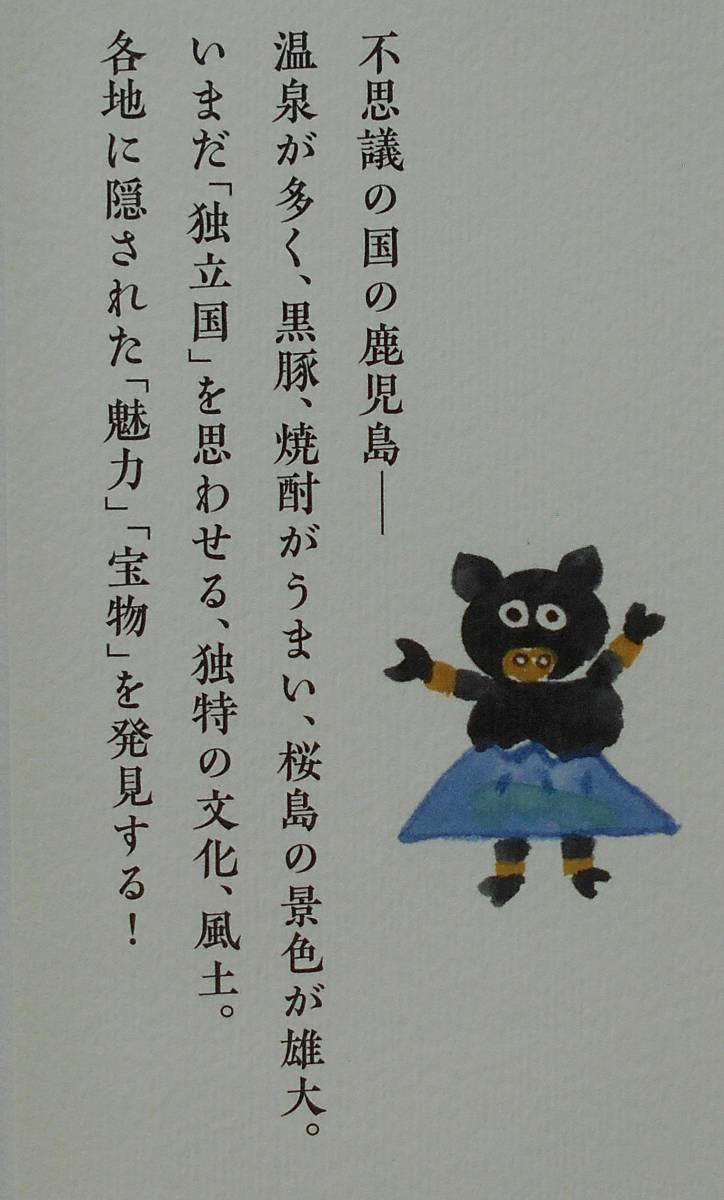 不思議の国の鹿児島──
温泉が多く、黒豚、焼酎がうまい、桜島の景色が雄大。
いまだ「独立国」を思わせる、独特の文化、風土。
各地に隠された「魅力」「宝物」を発見する！